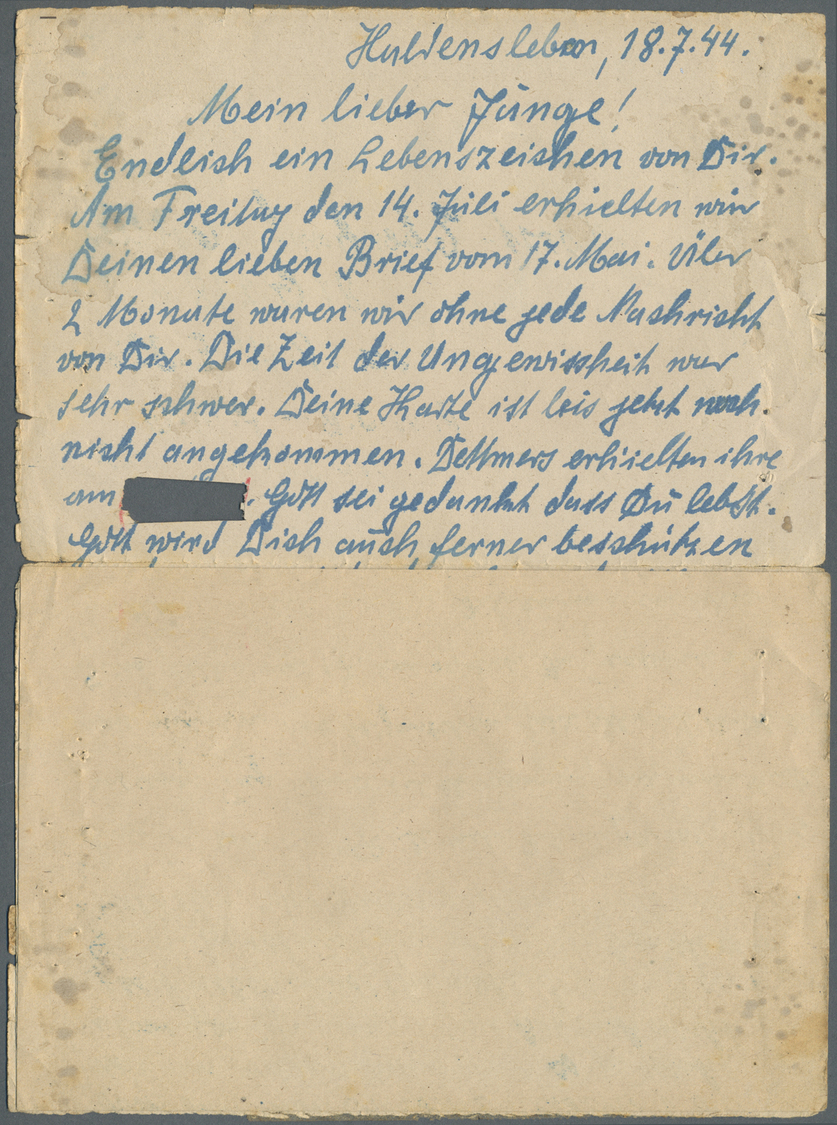 Haldensleben, 18.7.44.
Mein lieber Junge!
Endlich ein Lebenszeichen von Dir.
Am Freitag den 14. Juli erhielten wir
Deinen lieben Brief vom 17. Mai. Über
2 Monate waren wir ohne jede Nachricht
von Dir. Die Zeit der Ungewissheit war
sehr schwer. Deine Karte ist bis jetzt noch
nicht angekommen. Dettmers erhielten ihre
am . Gott sei gedankt dass Du lebst.
Gott wird Dich auch ferner beschützen